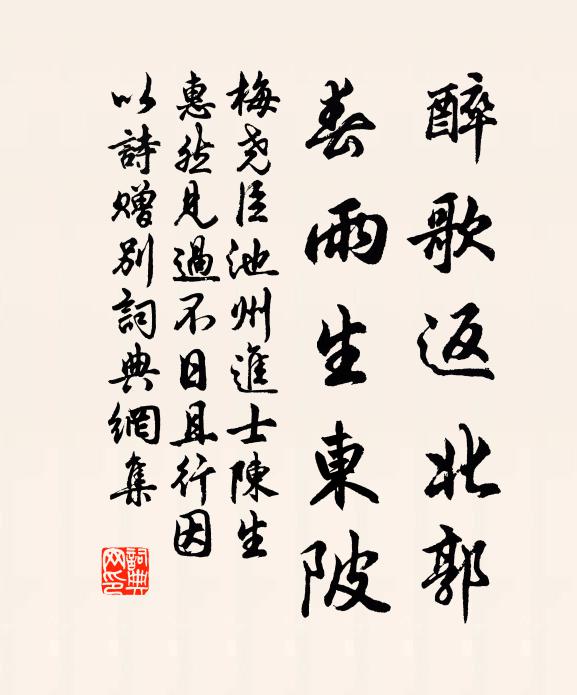 醉歌返北郭
春雨生東陂
梅堯臣池州進士陳生
惠然見過不日且行因
以詩贈別詞典網集
詞典网印